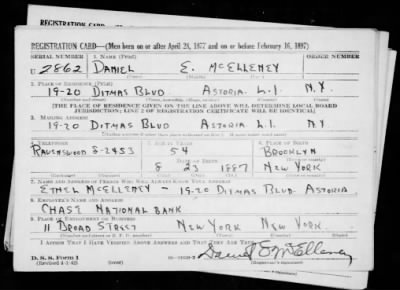 REGISTRATION CARD—(Men born on or after April 28, 1877 and on or before February 16, 1897)
SERIAL NUMBER 1. NAME (Print) ORDER NUMBER
U 2862 DANIEL E. McELLENEY
(First) (Middle) (Last)
2. PLACE OF RESIDENCE (Print)
19-20 DITMAS BLVD ASTORIA L.I. N.Y.
(Number and street) (Town, township, village, or city) (County) (State)
[THE PLACE OF RESIDENCE GIVEN ON THE LINE ABOVE WILL DETERMINE LOCAL BOARD
JURISDICTION; LINE 2 OF REGISTRATION CERTIFICATE WILL BE IDENTICAL]
3. MAILING ADDRESS
19-20 DITMAS BLVD ASTORIA L.I. N.Y.
4. TELEPHONE 5. AGE IN YEARS 6. PLACE OF BIRTH
RAVENSWOOD 8-2453 54 BROOKLYN
DATE OF BIRTH
8 23 1887 NEW YORK
7. NAME AND ADDRESS OF PERSON WHO WILL ALWAYS KNOW YOUR ADDRESS
ETHEL McELLENEY - 19-20 DITMAS BLVD. ASTORIA
8. EMPLOYER'S NAME AND ADDRESS
CHASE NATIONAL BANK
9. PLACE OF EMPLOYMENT OR BUSINESS
11 BROAD STREET NEW YORK NEW YORK
(Number and street or R. F. D. number) (Town) (County) (State)
I AFFIRM THAT I HAVE VERIFIED ABOVE ANSWERS AND THAT THEY ARE TRUE.
D. S. S. Form 1 Daniel E McElleney
(Revised 4-1-42) (over) (Registrant's signature)